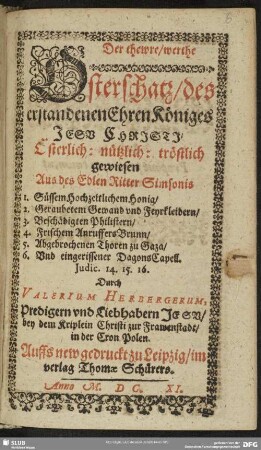 Der thewre/werthe
Osterschatz/des
erstandenen EhrenKöniges
JESV CHRISTI/
Österlich: nützlich: tröstlich
gewiesen
Aus des Edlen Ritter Simsonis
1. Süssem Hochzeitlichem Honig/
2. Geraubetem Gewand vnd Feyrkleidern/
3. Beschädigten Philistern/
4. Frischem Anruffers Brunn/
5. Abgebrochenen Thoren zu Gaza/
6. Vnd eingerissener Dagons Capell.
Judic. 14. 15. 16.
Durch
VALERIUM HERBERGERUM,
Predigern vnd Liebhabern JESV/
bey dem Kriplein Christi zur Frawenstadt/
in der Cron Polen.
Auffs new gedruckt zu Leipzig/im
verlag Thomæ Schürers.
Anno M. DC. XI.
SLUB
DFG